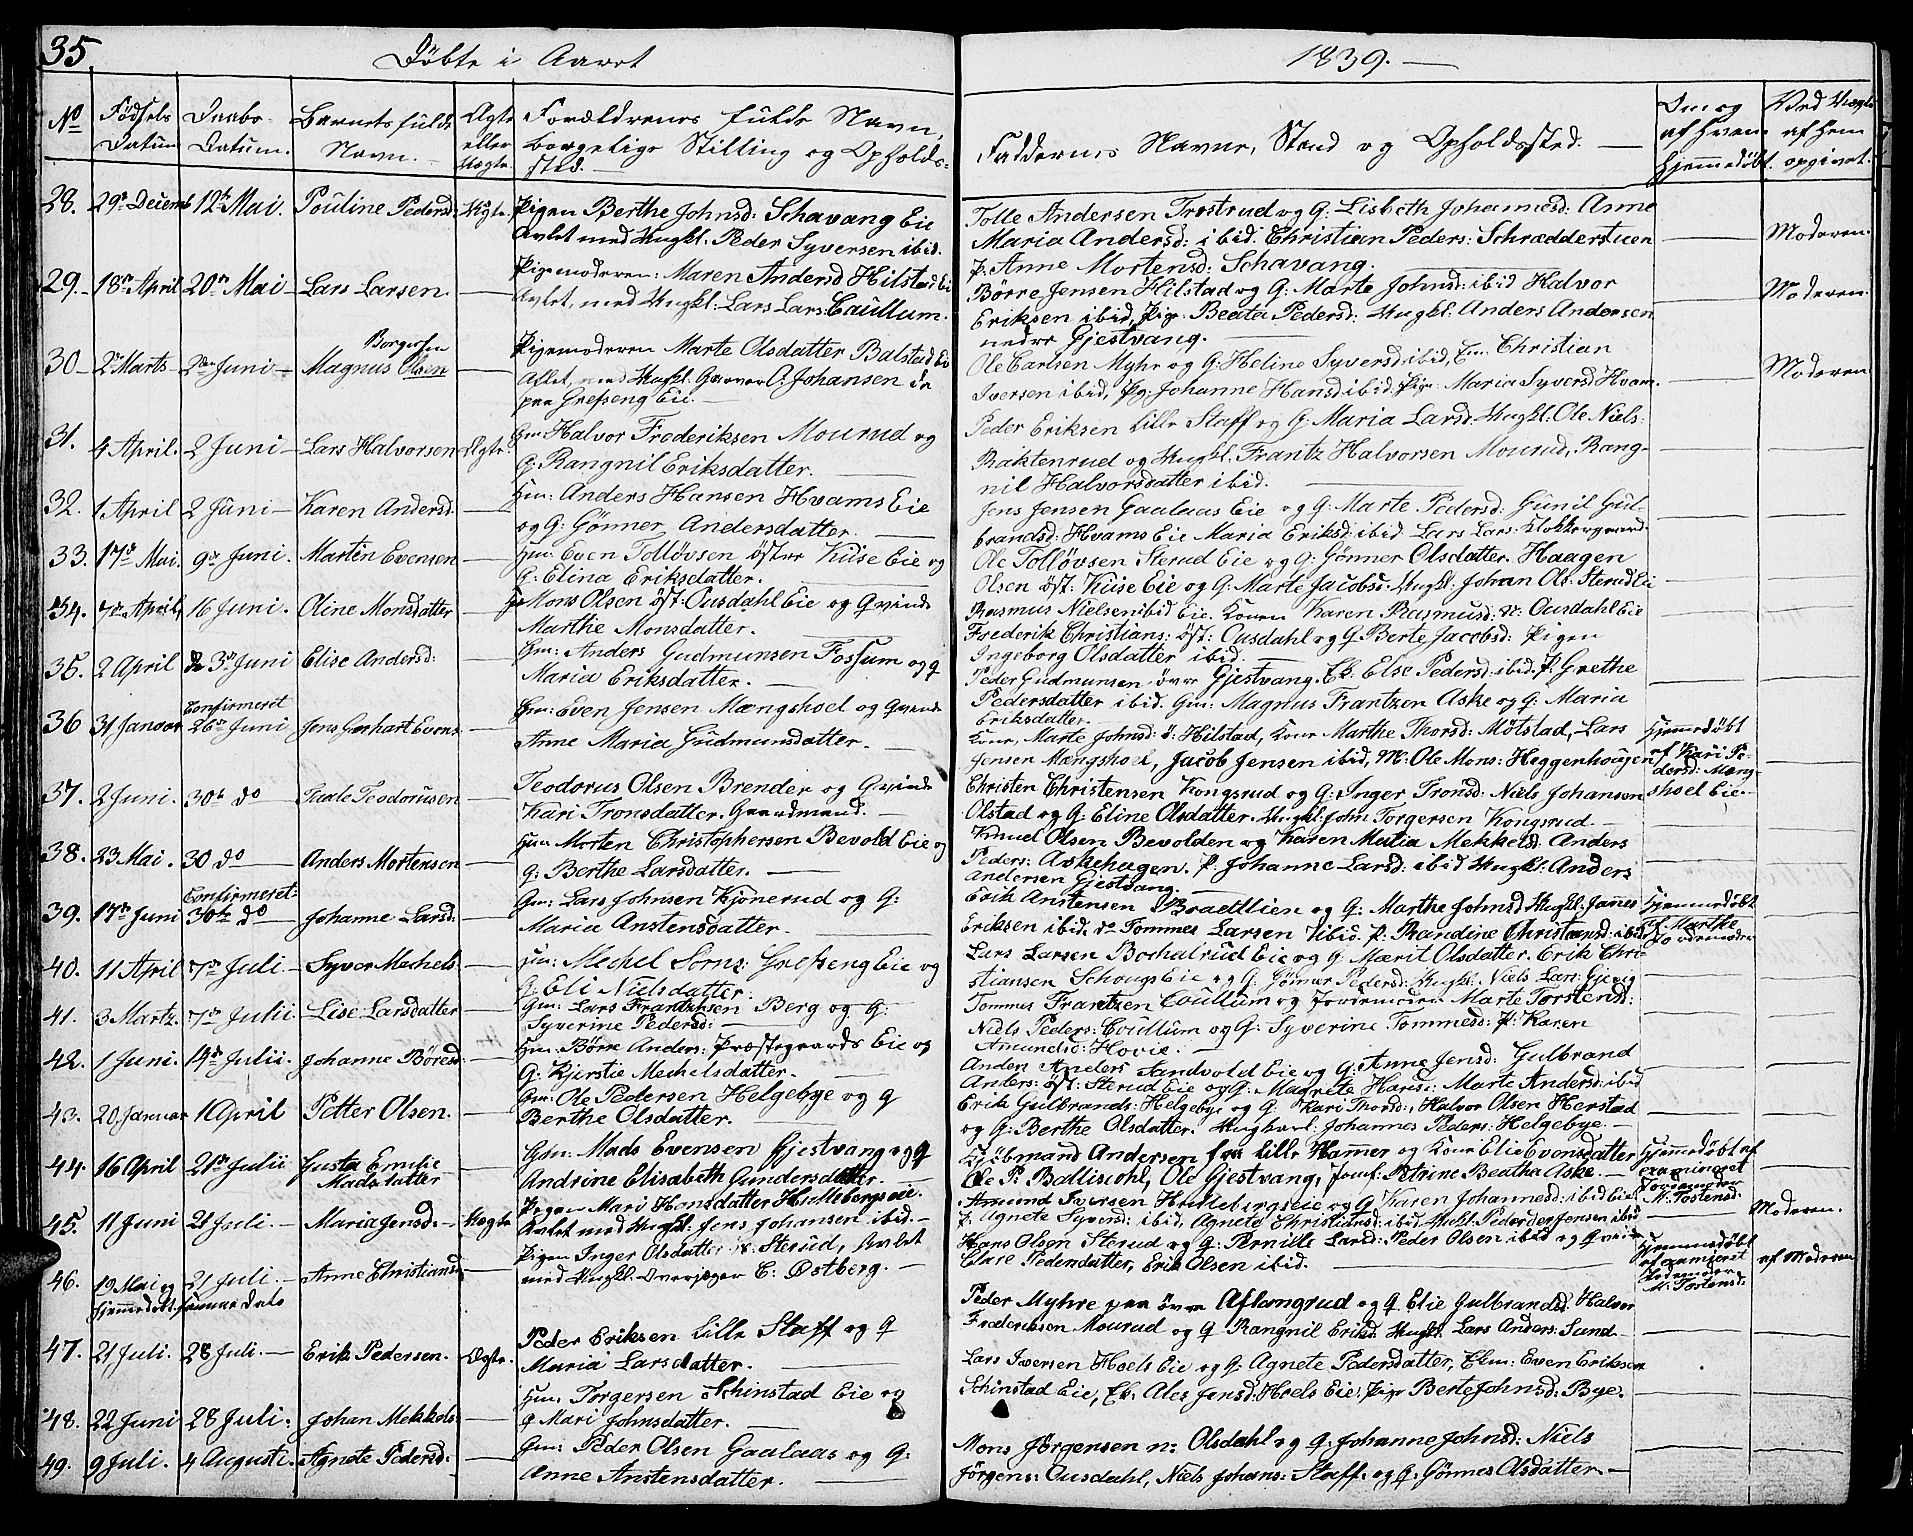 35.
Döbte i Aaret
1839. —
No
Födsels Datum
Daabs- Datum.
Barnets fulde Navn. —
Ægte eller Uægte
Forældrenes fulde Navn, borgelige Stilling og Opholdssted. —
Faddernes Navne, Stand og Opholdssted. —
Om og af hvem hjemmedöbt.
Ved Uægte af hem opgivet.
28. 29de Decemb 12te Mai. Pouline Pedersd: Uægte Pigen Berthe Johnsd: Schavang Eie
Avlet med Ungkl. Peder Syversen ibid.
Tolle Andersen Trostrud og G: Lisbeth Johannesd: Anne
Maria Andersd: ibid. Christian Peders: Schræddertuen
P: Anne Mortensd: Schavang.
Moderen.
29. 18de April 20de Mai Lars Larsen. — Pigemoderen: Maren Andersd Hilstad Ei
Avlet, med Ungkl. Lars Lars: Caullum.
Börre Jensen Hilstad og G: Marte Johnsd: ibid Halvor
Eriksen ibid, Pige Beata Pedersd: Ungkl: Anders Andersen
nedre Gjestvang. —
Moderen.
30 2 Marts 2den Juni Magnus Olsen Borgersen — Pigemoderen Marte Olsdatter Balstad Ei
Aflet, med Ungkl. O: Johansen
paa Grefseng Eie. —
Ole Carlsen Myhr og G: Heline Syversd: ibid, Em: Christian
Iversen ibid, Pg: Johanne Hansd ibid: Pige Maria Syversd Hvam.
Moderen
31. 4 April. 2 Juni Lars Halvorsen Ægte. Gm Halvor Frederiksen Mourud og
G: Rangnil Eriksdatter. —
Peder Eriksen Lille Staff og G: Maria Larsd. Ungkl: Ole Niels:
Raktenrud og Ungkl. Frantz Halvorsen Mourud, Rang-
nil Halvorsdatter ibid. —
32. 1 April 2 Juni Karen Andersd. — Hm: Anders Hansen Hvams Eie
og G: Gönner Andersdatter. —
Jens Jensen Gaalaas Eie og G: Marte Pedersd: Gunil Gul-
brandsd: Hvams Eie Maria Eriksd: ibid Lars Lars: Klokkergaard.
33. 17de Mai. 9de Juni. Martin Evensen — Hm: Even Tollövsen östre Kiise Eie og
G: Elina Eriksdatter. —
Ole Tollövsen Sterud Eie og G: Gönner Olsdatter. Haagen
Olsen öst: Kiise Eie og G: Marte Jacobsd: Ungkl. Johan Ols: Sterud Ei
34. 7de April 16 Juni. Oline Monsdatter — Mons Olsen öst: Ousdahl Eie og Qvinde
Marthe Monsdatter. —
Rasmus Nielsen ibid Eie. Konen Karen Rasmusd: n: Ousdahl Eie
Frederik Christians: öst: Ousdahl og G Berte Jacobsd: Pigen
Ingeborg Olsdatter ibid. —
35. 2 April 3de Juni Elise Andersd: — Gm: Anders Gudmunsen Fossum og G
Maria Eriksdatter. —
Peder Gudmunsen övre Gjestvang. Ek: Else Pedersd: ibid. P: Grethe
Pedersdatter ibid. Gm: Magnus Frantzen Aske og G: Maria
Eriksdatter. —
36 31 Januar Confirmeret 26de Juni Jens Gerhart Evens: — Gm: Even Jensen Mængshoel og Qvinde
Anne Maria Gudmunsdatter. —
Kone, Marte Johnsd: ö: Hilstad, Kone Marthe Thorsd: Mötstad, Lars
Jensen Mængshoel, Jacob Jensen ibid, M: Ole Mons: Heggenhougen
Hjemmedöbt af Kari Pe-
dersd: Mæng-
shoel Eie. —
37. 2 Juni. 30te do Paale Teodorusen — Teodorus Olsen Brender og Qvinde
Kari Tronsdatter. Gaardmand. —
Christen Christensen Kongsrud og G: Inger Tronsd: Niels Johansen
Olstad og G: Eline Olsdatter. Ungkl: John Torgersen Kongsrud. —
38. 23 Mai. 30 do Anders Mortensen — Hm: Morten Christophersen Bevold Eie og
G: Berthe Larsdatter. —
Knud Olsen Bevolden og Karen Matia Mekkelsd: Anders
Peders: Askehagen. P. Johanne Larsd: ibid Ungkl: Anders
Andersen Gjestvang. —
39. 17de Juni Confirmeret: 30te do Johanne Larsd: — Gm: Lars Johnsen Kjönerud og G:
Maria Anstensdatter. —
Erik Anstensen Braatlien og G: Marthe Johnsd Ungkl: Jahnes
Eriksen ibid, do Tommes Larsen ibid. P: Randine Christiansd: ibid
Hjemmedöbt
af Marthe
Jordmoder
40. 11 April 7de Juli Syver Mechels. — Hm: Mechel Sörns: Grefseng Eie og
G: Eli Nielsdatter:
Lars Larsen Bochalrud Eie og G: Mærit Olsdatter. Erik Chri-
stiansen Schougs Eie og G: Gönner Peders: Ungkl: Niels Lars: Gjevig
41. 3 Martz. 7de Julii. Lise Larsdatter — Gm: Lars Frantzhsen Berg og G:
Syverine Pedersd: —
Tommes Frantzen Coullum og Jordemoder Marte Torstensd:
Niels Peders: Coullum og G: Syverine Tommesd: P: Karen
Amundsd: Hovie. —
42. 1 Juni. 14de Julii. Johanne Böresd: — Hm: Börre Anders: Præstegaards Eie og
G: Kjerstie Mechelsdatter. —
Anden Anders Sandvold Eie og G: Anne Jensd: Gulbrand
Anders: öst: Sterud Eie og G: Magrete Hansd: Marte Andersd: ibid
43. 20 Januar 1 April Petter Olsen. — Gm: Ole Pedersen Helgebye og G
Berthe Olsdatter. —
Erik Gulbrands: Helgebye og G: Kari Thorsd:, Halvor Olsen Herstad
og G: Berthe Olsdatter. Ungkarl: Johannes Peders: Helgebye. —
44. 16 April 21de Julii Gusta Emilie
Madsdatter — Gdm: Mads Evensen Gjestvang og G
Andrine Elisabeth Gundersdatter. —
Kjöbmand Andersen fra Lille Hammer og Kone Elie Evensdatter
P: Ballisiohl, Ole Gjestvang, Jomf: Petrine Beatha Aske. —
Hjemmedöbt af
examineret
Jordemoder
M. Tostensd:
45. 11 Juni 21 Juli. Maria Jensd: — Uægte Pigen Mari Honsdatter Huchlebergs eie.
Avlet med Ungkl. Jens Johansen ibid. —
Amund Iversen Huchlebergseie og G: Karen Johannesd: ibid Eie.
P. Agnete Syversd: ibid, Agnete Christiansd: ibid Ungkl: Peder Jensen ibid
Moderen.
46. 19 Mai og
Hjemmedöbt 21 Juli. —
samme Dato Anne Christiansd — Pigen Inger Olsdatter Sterud, Avlet
med Ungkl. Overjæger C: Østberg. —
Hans Olsen Sterud og G: Pernille Larsd: Peder Olsen ibid og Qvinde
Clare Pedersdatter, Erik Olsen ibid. —
Hjemmedöbt
af examineret
Jordemoder
M. Tostensd:
af Moderen
47. 21 Juli. 28 Juli. — Erik Pedersen. Ægte. Peder Eriksen Lille Staff og G
Maria Larsdatter. —
Peder Myhre paa övre Aflangrud og G Elie Gulbrandsd. Halvor
Frederiksen Mourud og G Rangnil Eriksd: Ungkl: Lars Anders: Sund —
48. 22 Juni 28 Juli. Johan Mekkels: — Hm: Torgersen Schinstad Eie og
G Mari Johnsdatter. —
Lars Iversen Hoels Eie og G: Agnete Pedersdatter, Elm: Even Eriksen
Schinstad Eie, Ek: Ales Jensd: Hoels Eie, Pige Berte Johnsd: Bye.
49. 9 Juli. 4 Augusti. Agnete Pedersd: — Gm: Peder Olsen Gaalaas og G:
Anne Anstensdatter. —
Mons Jörgensen n: Olsdahl og G: Johanne Johnsd: Niels
Jörgens: Ousdahl, Niels Johans: Staff. og G. Gönnes Olsdatter. —